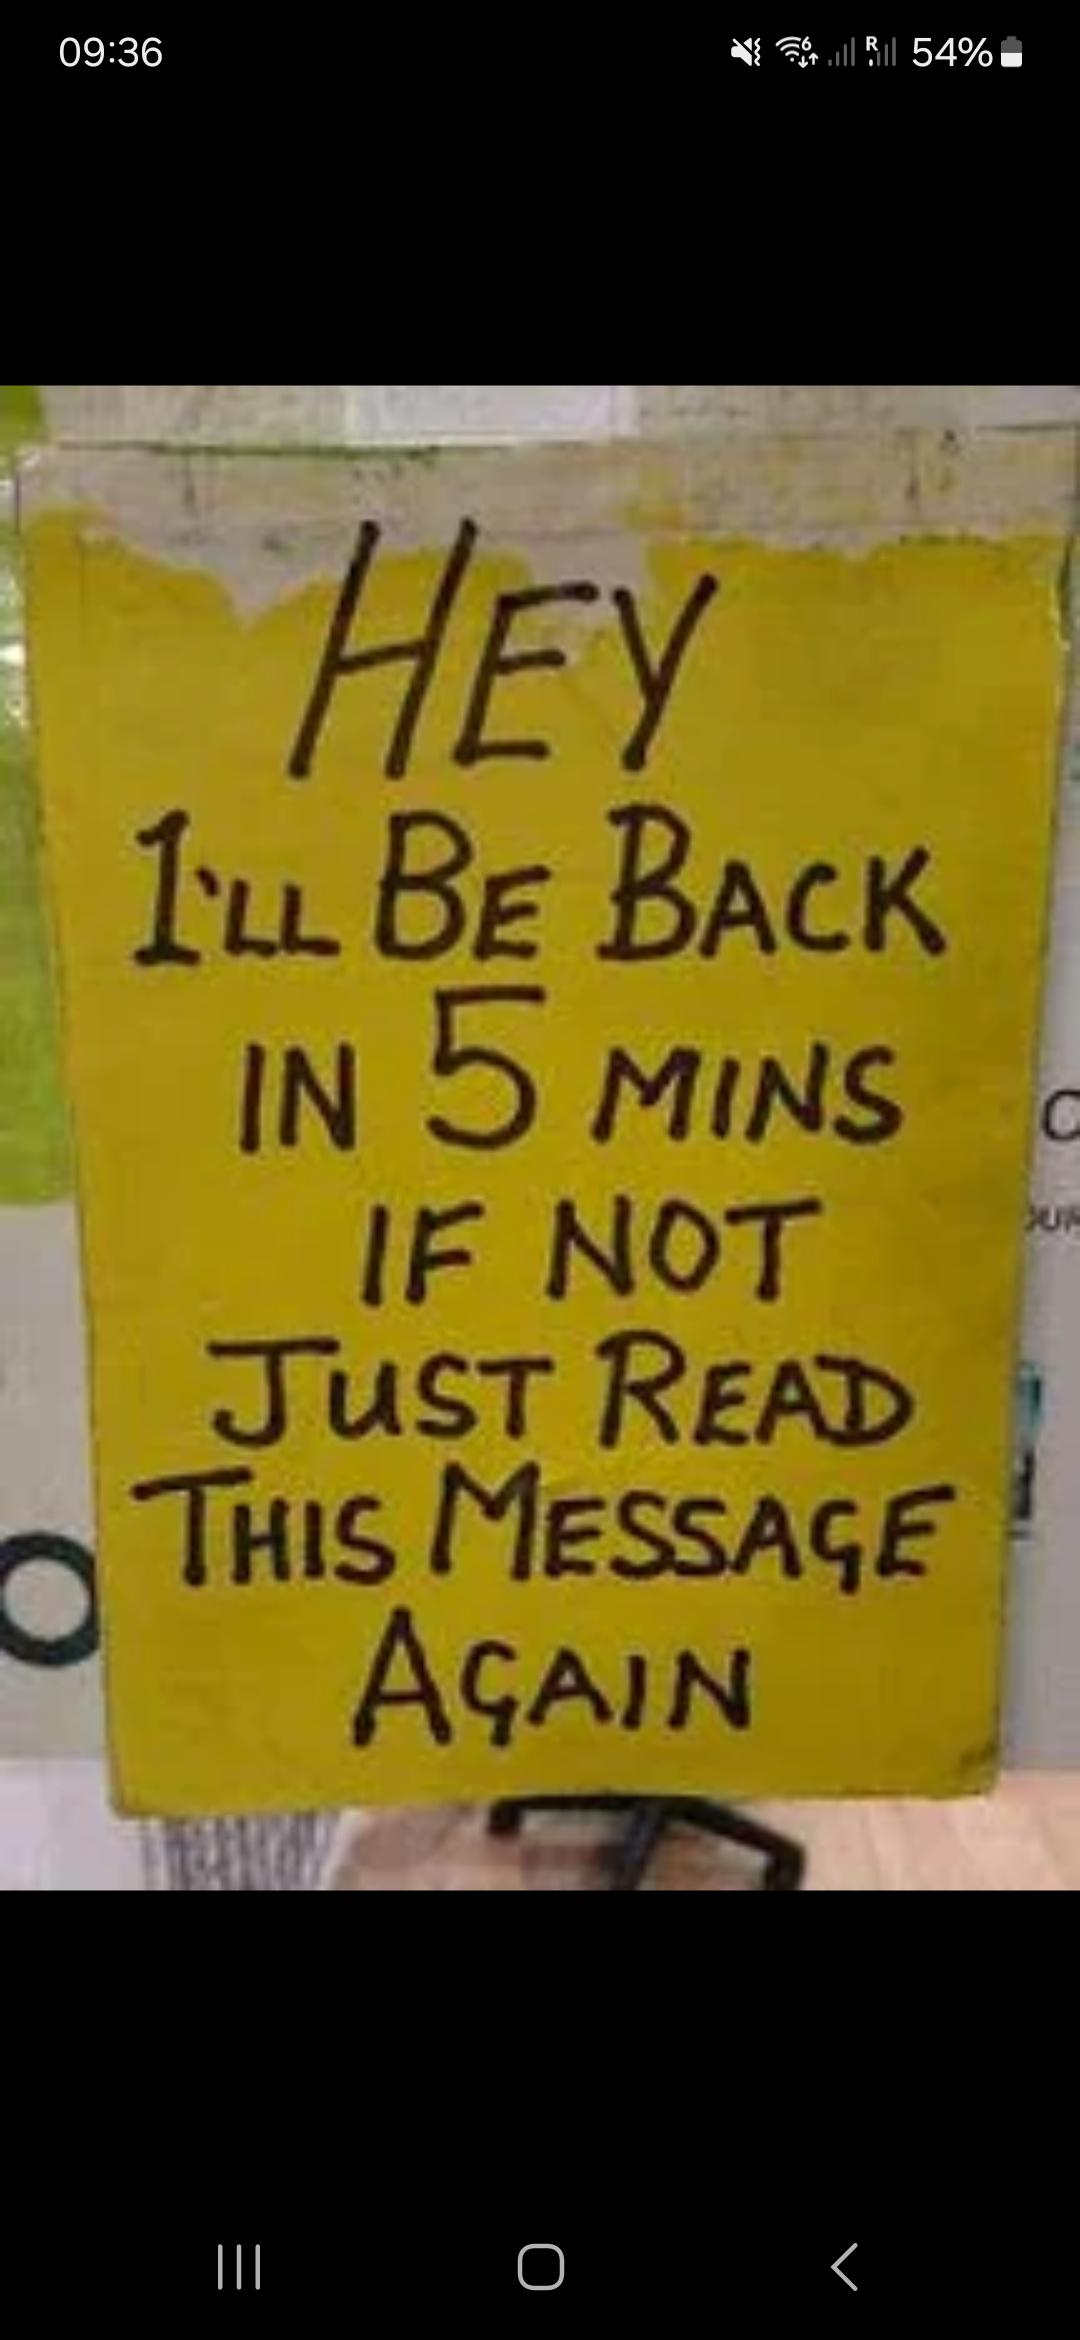 09:36
R
6
54%
HEY
I'LL BE BACK
IN 5 MINS
IF NOT
JUST READ
THIS MESSAGE
AGAIN
O